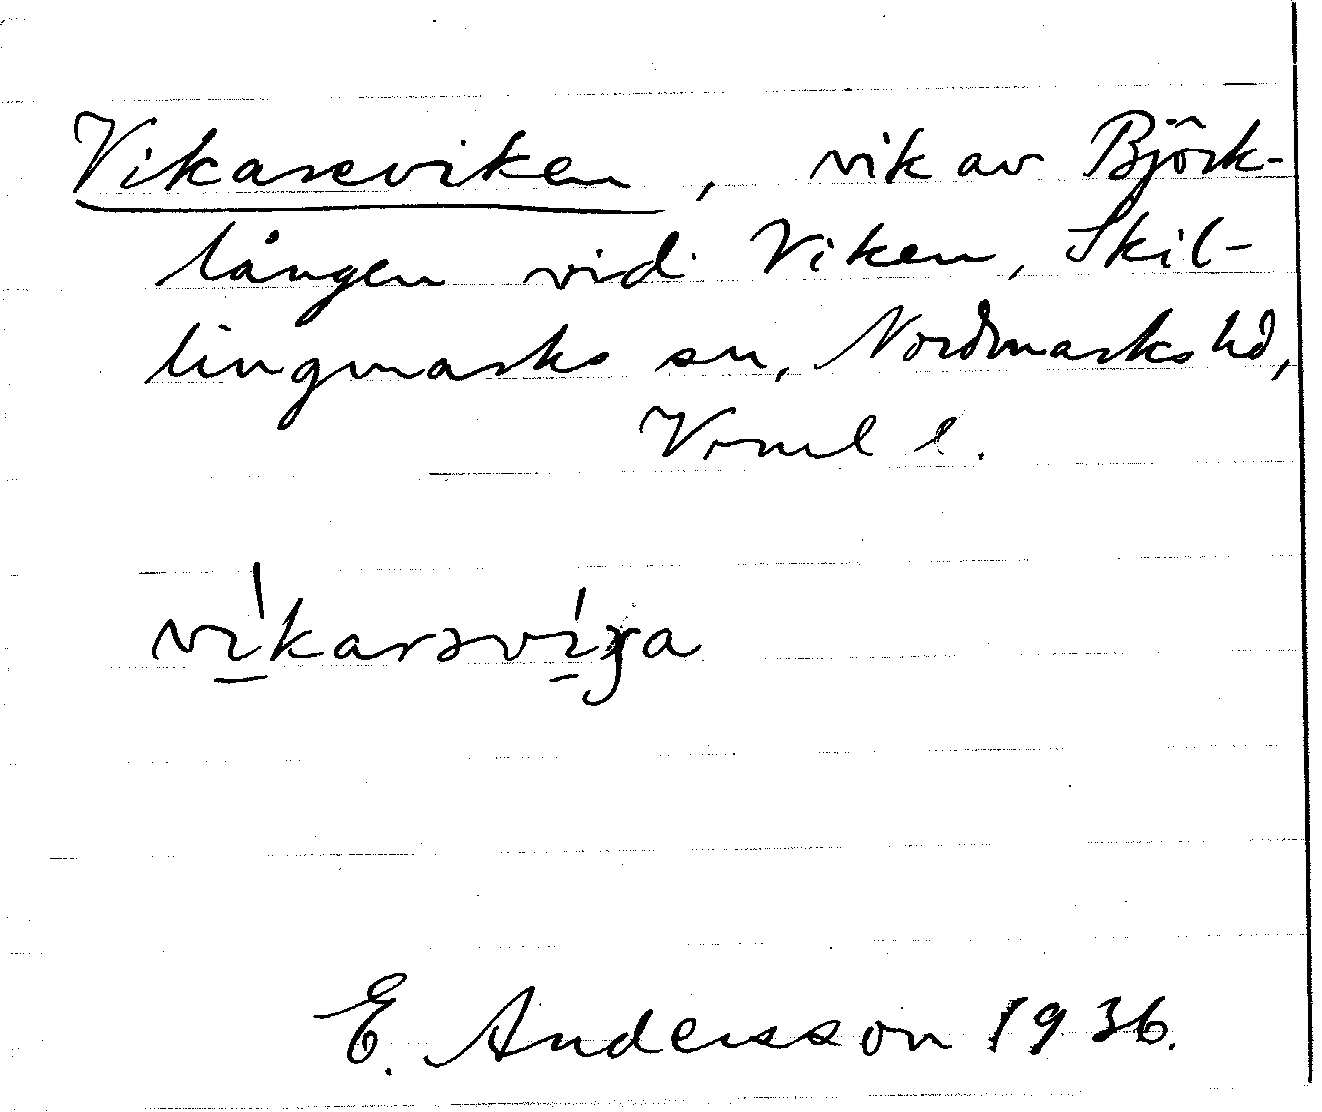 Vikareviken, vik av Björk-
lången vid Viken, Skil-
lingmarks sn, Nordmarks hd,
Vrml l.
vi̱´karəvi̱´ɣa
E. Andersson 1936.